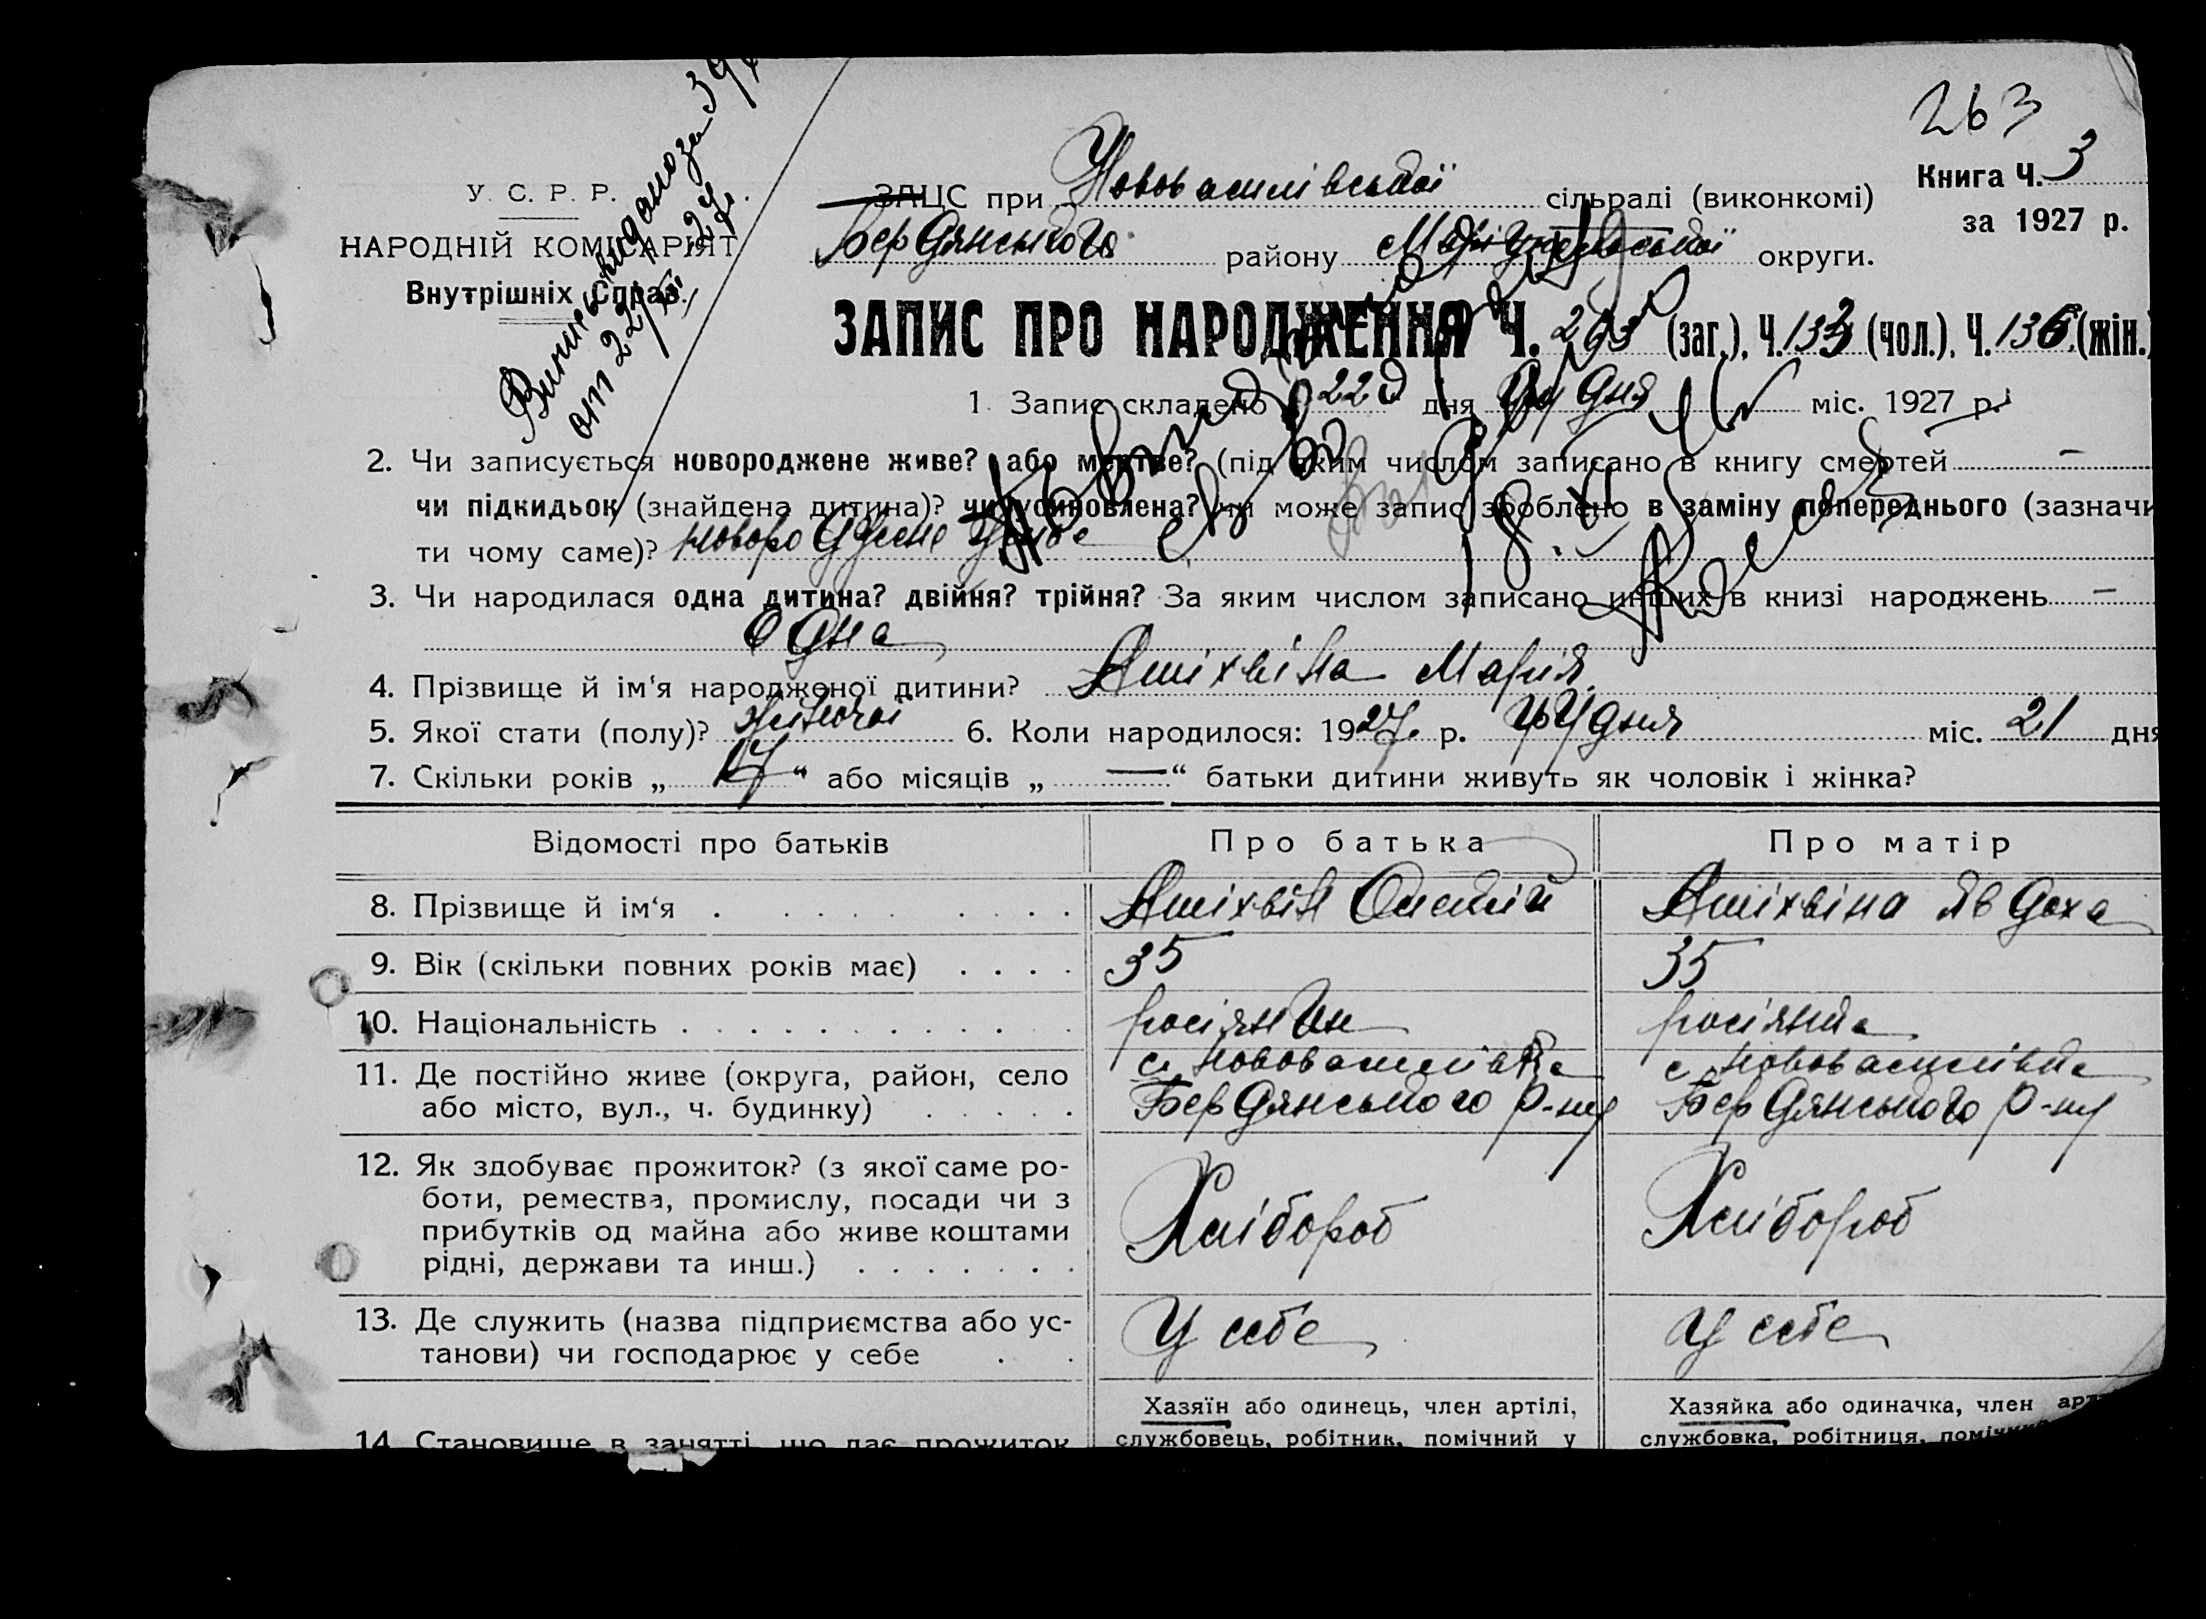 263
У. С. Р. Р.
НАРОДНІЙ КОМІСАРІЯТ
Внутрішніх Справ.
Книга Ч. 3
за 1927 р.
ЗАЦС при Нововасилівської сільраді (виконкомі)
Бердянського району Маріупольської округи.
ЗАПИС ПРО НАРОДЖЕННЯ Ч. 263 (заг.), Ч. 133 (чол.), Ч. 136 (жін.)
1. Запис складено 22 дня Грудня міс. 1927 р.
2. Чи записується новороджене живе? або мертве? (під яким числом записано в книгу смертей —
чи підкидьок (знайдена дитина)? чи усиновлена? чи може запис зроблено в заміну попереднього (зазначи
ти чому саме)? новороджене живе
3. Чи народилася одна дитина? двійня? трійня? За яким числом записано инших в книзі народжень —
одна
4. Прізвище й ім'я народженої дитини? Ашіхвіна Марія.
5. Якої стати (полу)? жіночої 6. Коли народилося: 1927 р. Грудня міс. 21 дня
7. Скільки років „ 17 “ або місяців „ — “ батьки дитини живуть як чоловік і жінка?
Відомості про батьків Про батька Про матір
8. Прізвище й ім‘я . . . . . . . . . Ашіхвін Ашіхвіна Явдоха
9. Вік (скільки повних років має) . . . . 35 35
10. Національність . . . . . . . . . . . росіянин росіянка
11. Де постійно живе (округа, район, село с. Нововасилівка с. Нововасилівка
або місто, вул., ч. будинку) . . . . . Бердянського р-ну Бердянського р-ну
12. Як здобуває прожиток? (з якої саме ро-
боти, ремества, промислу, посади чи з
прибутків од майна або живе коштами
рідні, держави та инш.) . . . . . . . Хлібороб Хлібороб
13. Де служить (назва підприємства або ус-
танови) чи господарює у себе . . У себе У себе
Хазяїн або одинець, член артілі, Хазяйка або одиначка, член
14. Становище в занятті, що дає прожиток службовець, робітник, помічний у службовка, робітниця,